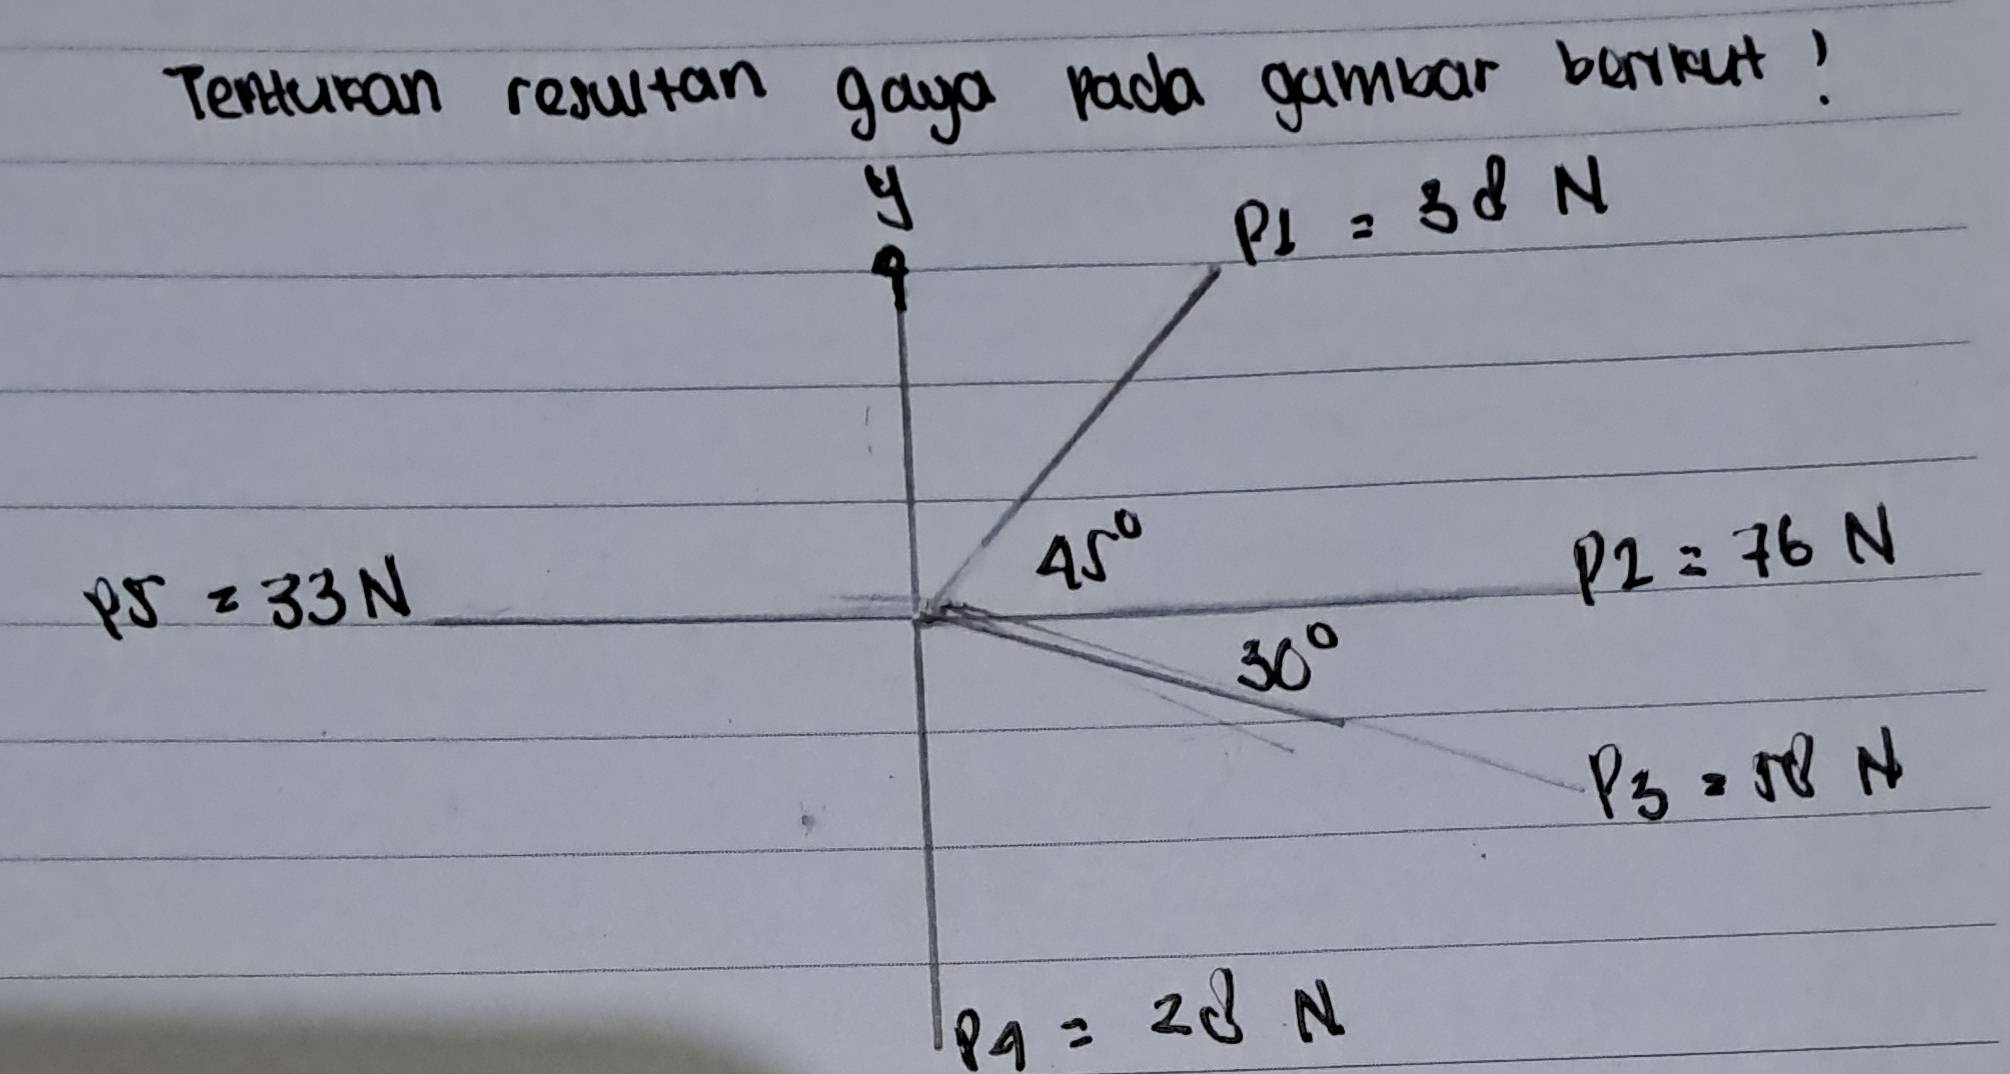 Tentukan resultan gaya pada gambar berikut !
y
P1 = 38 N
45°
P2 = 76 N
P5 = 33 N
30°
P3 = 58 N
P4 = 28 N